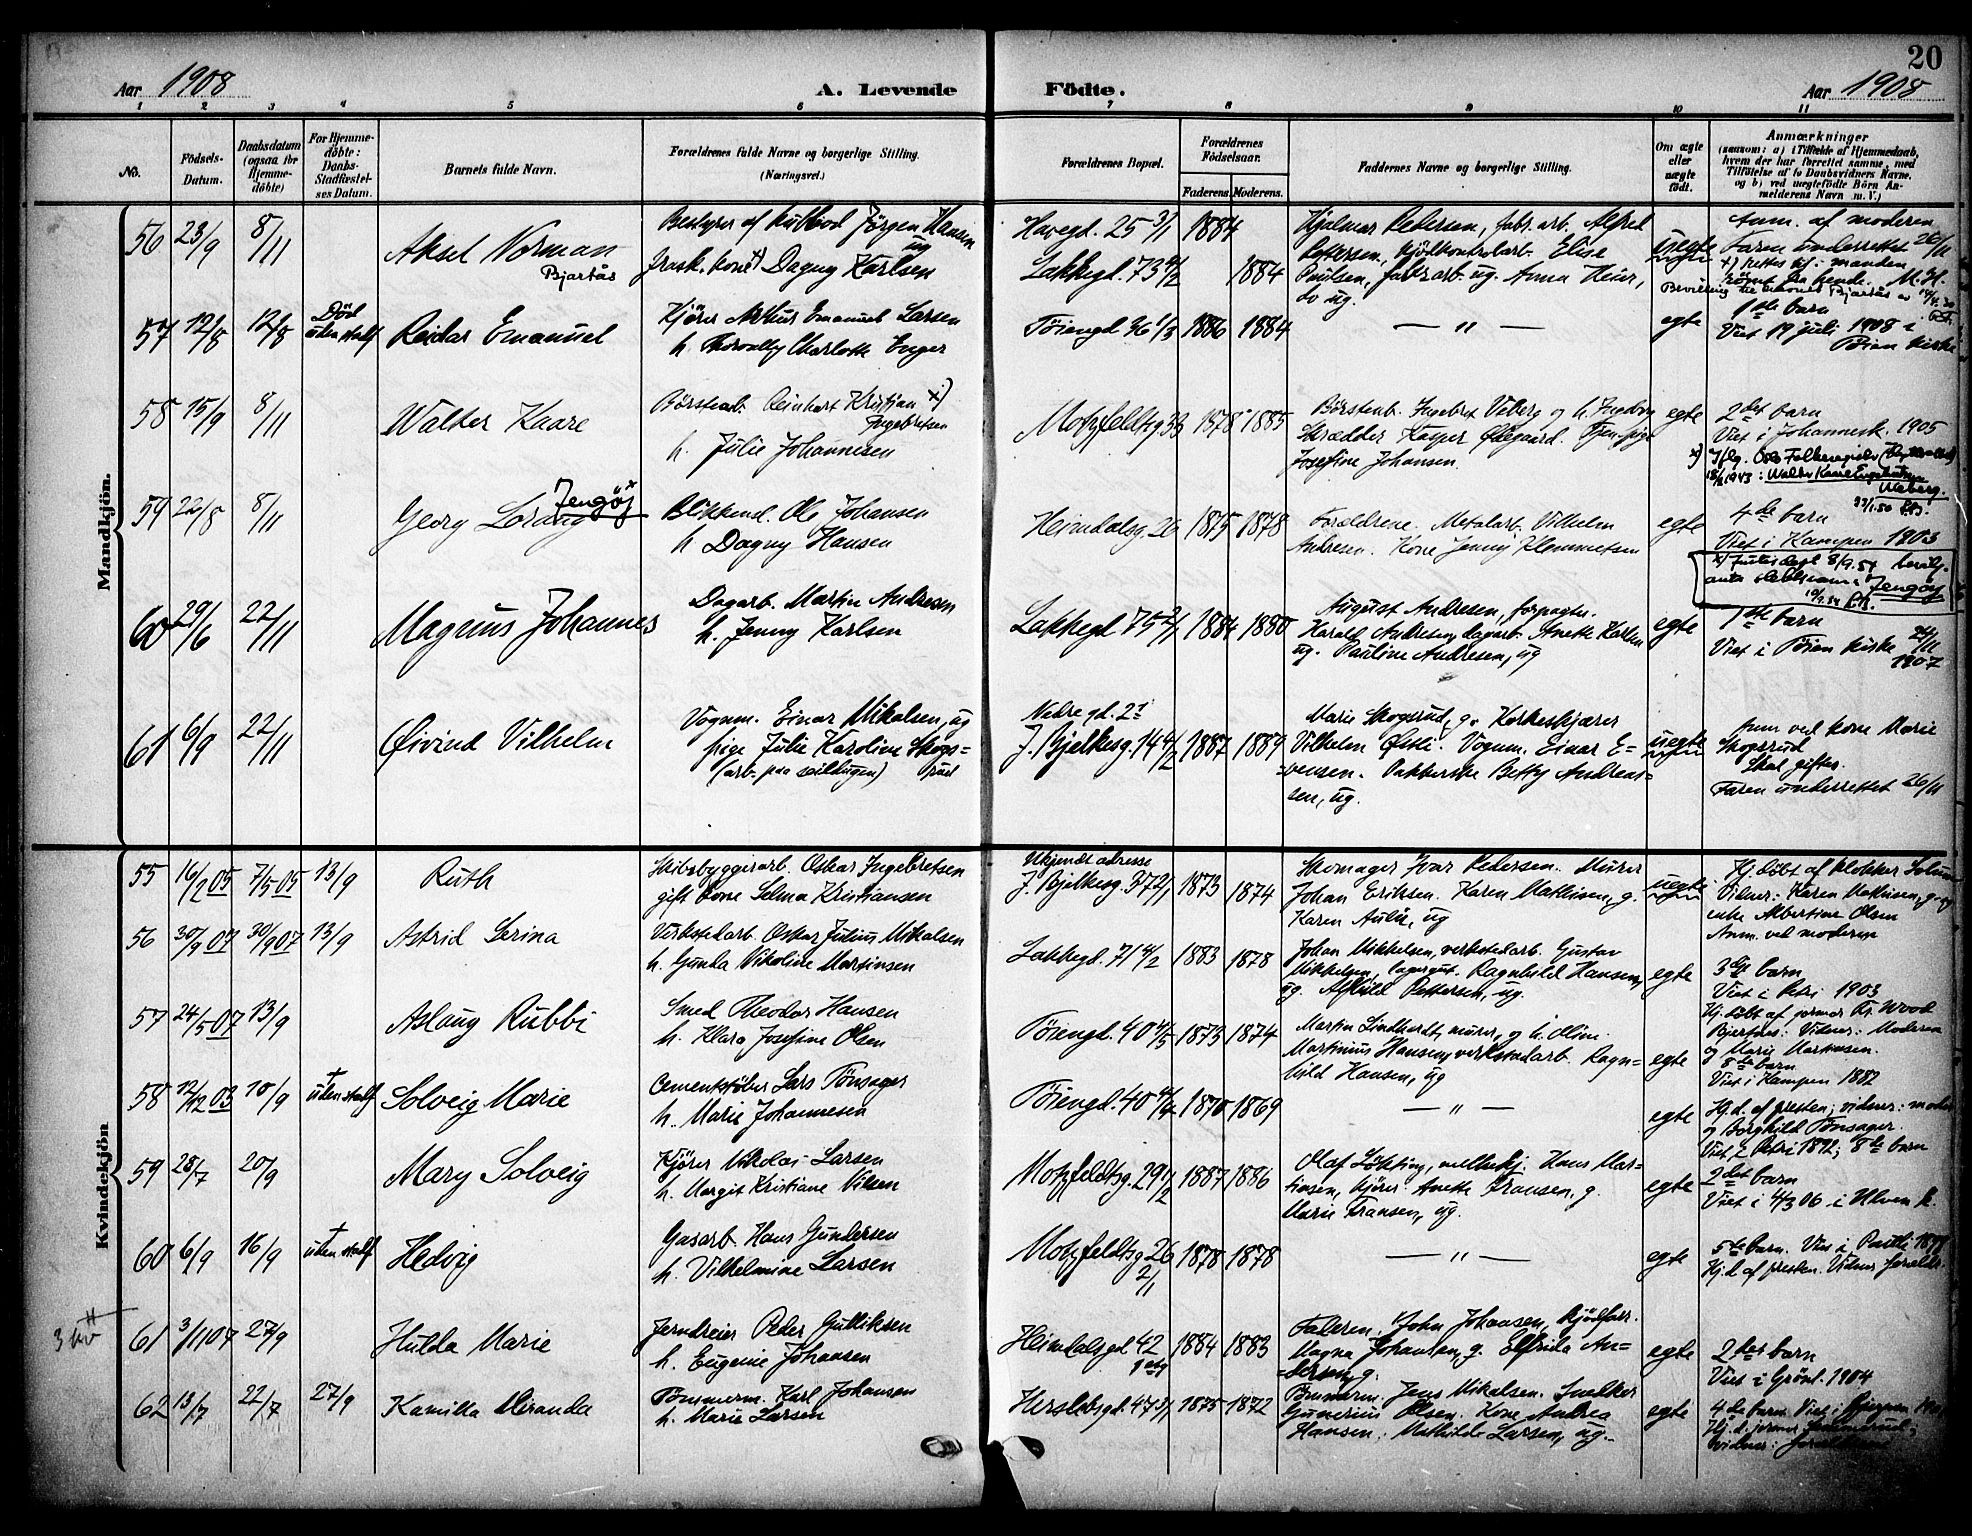 20
Aar 1908
A. Levende Födte.
Aar 1908
1 2 3 4 5 6 7 8 9 10 11
No.
Födsels-Datum.
Daabsdatum (ogsaa for Hjemme-döbte)
For Hjemme-döbte: Daabs-Stadfæstel-ses Datum.
Barnets fulde Navn.
Forældrenes fulde Navne og borgerlige Stilling.
(Næringsvei.)
Forældrenes Bopæl.
Forældrenes Födselsaar.
Faderens. Moderens.
Faddernes Navne og borgerlige Stilling.
Om ægte eller uægte födt.
Anmærkninger
(saasom: a) i Tilfælde af Hjemmedaab, hvem der har forrettet samme, med Tilföielse af to Daabsvidners Navne. og b) ved uægtefödte Börn Anmelderens Navn m. V.)
Mandkjön.
56 23/9 8/11 Aksel Norman
Bjartås
Jørgen Hansen
Dagny Karlsen
Havegd. 25 3/1 1884
Lakkegd. 73 4/2 1884
Hjalmar Pedersen, fabr. arb. Alfred
Elise
Paulsen, fabr. arb. ug. Anna
uegte
Anm. af moderen
Faren underrettet 26/11
57 12/8 12/8 Död uten stalf Reidar Emanuel
Kjörer Arthur Emanuel Larsen
h. Charlotte Enger
Töiengd 36 1/3 1886 1884
— " —
egte
1ste barn
Viet 19 juli 1908 i
Töien kirke
58 15/9 8/11 Walter Kaare
Børstenb. Reinhart Kristian x)
Ingebretsen
h. Julie Johannesen
Motzfeldtsg 33 1878 1885
Børstenb. Ingebret Viberg og h. Ingeborg
Skrædder Kasper Ødegaard. Tjen. pige
Josefine Johansen.
egte
2det barn
Viet i Johannesk. 1905
59 22/8 8/11 Georg Lorang Jengöy x
Blikkensl. Ole Johansen
h. Dagny Hansen
Heimdalsg. 26 1875 1878
Forældrene. Metalarb. Vilhelm
Andresen. Kone Jenny Klemmetsen
egte
4de barn
Viet i Kampen 1903
Jengöy
60 29/6 22/11 Magnus Johannes
Dagarb. Martin Andresen
h. Jenny Karlsen
Lakkegd 75 2/1 1884 1880
August Andresen, forpagter.
Harald Andresen, dagarb. Anette Karlsen
ug. Pauline Andresen, ug
egte
1ste barn
Viet i Töien kirke 24/11
1907
61 6/9 22/11 Øivind Vilhelm
Vognm. Einar Mikalsen, ug
pige Julie Karoline Skogs-
(arb. paa seildugen) rud
Nedre gd. 21
J. Bjelkesg. 14 4/2 1887 1889
Marie Skogsrud, g. Korkeskjærer
Vilhelm Østli. Vognm. Einar E-
vensen. Pakkerske Betty Andreas-
sen, ug.
uegte
Anm ved kone Marie
Skogsrud
Skal giftes.
Faren underrettet 26/11
Kvindekjön
55 16/2 05 7/5 05 13/9 Ruth
Skibsbyggerarb. Oskar Ingebretsen
gift kone Selma Kristiansen
Ukjendt adresse
J. Bjelkesg. 37 2/1 1873 1874
Skomager Ivar Pedersen. Murer
Johan Eriksen. Karen Mathisen, g.
Karen Aulie, ug
uegte
Hj. döbt af klokker Solum
Vidner: Karen Mathisen, g. og
enke Albertine Olsen
Anm. ved moderen
56 30/9 07 30/9 07 13/9 Astrid Serina
Verkstedarb. Oskar Julius Mikalsen
h. Gunda Nikoline Martinsen
Lakkegd. 71 4/2 1883 1878
Johan Mikkelsen, verkstedarb. Gustav
Mikkelsen, lagergut. Ragnhild Hansen,
ug. Pettersen, ug.
egte
3die barn
Viet i Petri 1903
57 24/5 07 13/9 Aslaug Rubbi
Smed Theodor Hansen
h. Klara Josefine Olsen
Töiengd. 40 4/5 1873 1874
Martin Lindhardt, murer, og h. Oline.
Martinius Hansen, verkstedarb. Ragn-
hild Hansen, ug
egte
Hj. döbt af jormor Fr. Wood
Bjerknes: Vidner: Moderen
og Marie
8de barn
Viet i Kampen 1882
58 12/12 03 10/9 † uten stalf Solveig Marie
Cementstöber Lars Tönsager
h. Marie Johannesen
Töiengd. 40 4/4 1870 1869
— " —
egte
Hj. d. af presten; vidner: moder
og Borghild Tönsager.
Viet i Petri 1892; 8de barn
59 28/7 20/9 Mary Solveig
Kjörer Nikolai Larsen
h. Margit Kristiane Nilsen
Motzfeldtsg. 29 1/2 1887 1886
Olaf Lökting, melkekj. Hans Mar-
tinsen, kjörer. Anette Fransen, g.
Marie Fransen, ug.
egte
2det barn
Viet i 4/3 06 i Ulven k.
60 6/9 16/9 † uten stalf Hedvig
Gasarb. Hans Gundersen
h. Vilhelmine Larsen
Motzfeldtsg 26
2/1 1878 1878
— " —
egte
5te barn. Viet i Pauli
Hj. d. af presten. Vidner foreldr.
3 kv
61 3/11 07 27/9 Hulda Marie
Jerndreier Peder Gulliksen
h. Eugenie Johansen
Heimdalsgd 42
1 etg 1884 1883
Faderen. John Johansen,
Magna Johansen, g. Elfrida An-
dersen, g.
egte
2det barn
Viet i Grönl. 1904
62 13/7 22/7 27/9 Kamilla Miranda
Tömmerm. Karl Johansen
h. Marie Larsen
Herslebsgd. 47 3/1 1875 1872
Tömmerm. Jens Mikalsen. Snekker
Gunerius Olsen. Kone Andrea
Hansen. Mathilde Larsen, ug.
egte
4de barn. Viet i
Hj. d. jormor
vidner: